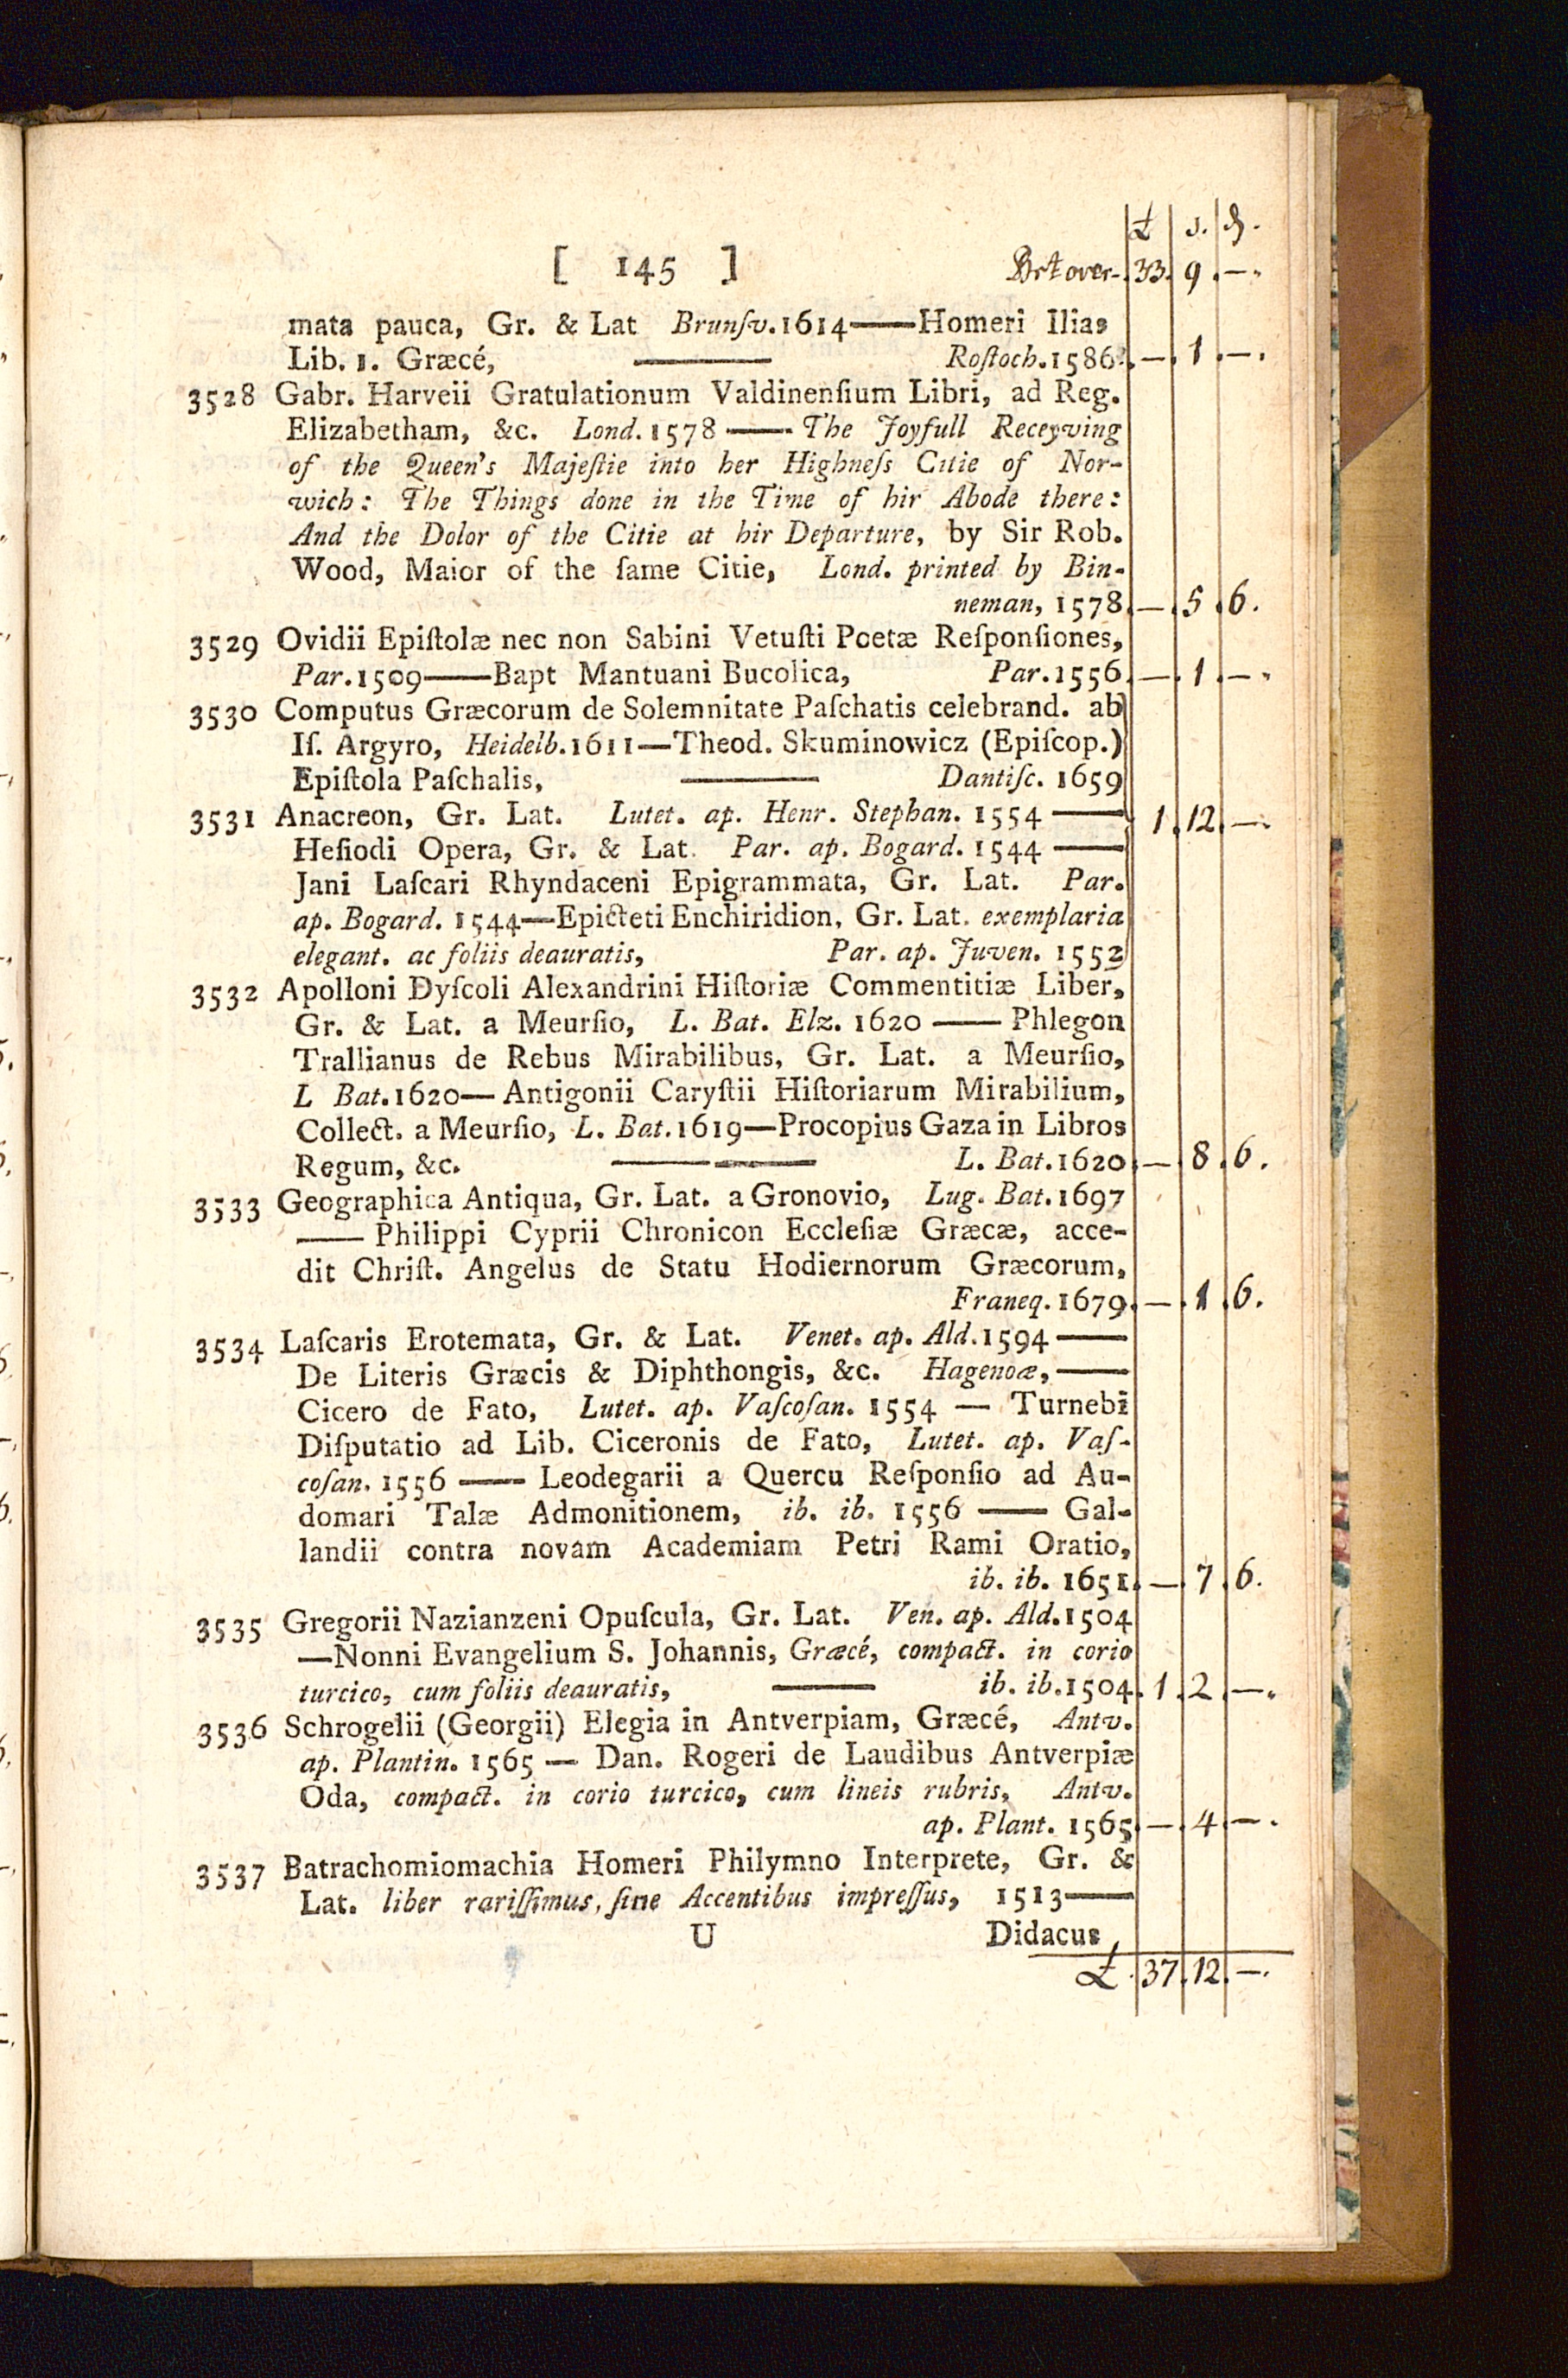 £ s. d.
[ 145 ] Brt over - 33. 9. —.
mata pauca, Gr. & Lat Brunſv. 1614——Homeri Ilias
Lib. 1. Græcé, —— Roſtoch. 1586. — . 1 . — .
3528 Gabr. Harveii Gratulationum Valdinenſium Libri, ad Reg.
Elizabetham, &c. Lond. 1578 —— The Joyfull Receyving
of the Queen's Majeſtie into her Highneſs Citie of Nor-
wich: The Things done in the Time of hir Abode there:
And the Dolor of the Citie at hir Departure, by Sir Rob.
Wood, Maior of the ſame Citie, Lond. printed by Bin-
neman, 1578. — . 5 . 6 .
3529 Ovidii Epiſtolæ nec non Sabini Vetuſti Poetæ Reſponſiones,
Par. 1509——Bapt Mantuani Bucolica, Par. 1556. — . 1 . — .
3530 Computus Græcorum de Solemnitate Paſchatis celebrand. ab
Iſ. Argyro, Heidelb. 1611—Theod. Skuminowicz (Epiſcop.)
Epiſtola Paſchalis, —— Dantiſc. 1659
3531 Anacreon, Gr. Lat. Lutet. ap. Henr. Stephan. 1554 —— 1 . 12 . — .
Heſiodi Opera, Gr. & Lat. Par. ap. Bogard. 1544 ——
Jani Laſcari Rhyndaceni Epigrammata, Gr. Lat. Par.
ap. Bogard. 1544—Epicteti Enchiridion, Gr. Lat. exemplaria
elegant. ac foliis deauratis, Par. ap. Juven. 1552
3532 Apolloni Dyſcoli Alexandrini Hiſtoriæ Commentitiæ Liber,
Gr. & Lat. a Meurſio, L. Bat. Elz. 1620 —— Phlegon
Trallianus de Rebus Mirabilibus, Gr. Lat. a Meurſio,
L Bat. 1620— Antigonii Caryſtii Hiſtoriarum Mirabilium,
Collect. a Meurſio, L. Bat. 1619—Procopius Gaza in Libros
Regum, &c. —— L. Bat. 1620. — . 8 . 6 .
3533 Geographica Antiqua, Gr. Lat. a Gronovio, Lug. Bat. 1697
—— Philippi Cyprii Chronicon Eccleſiæ Græcæ, acce-
dit Chriſt. Angelus de Statu Hodiernorum Græcorum,
Franeq. 1679. — . 1 . 6 .
3534 Laſcaris Erotemata, Gr. & Lat. Venet. ap. Ald. 1594 ——
De Literis Græcis & Diphthongis, &c. Hagenoæ, ——
Cicero de Fato, Lutet. ap. Vaſcoſan. 1554 — Turnebi
Diſputatio ad Lib. Ciceronis de Fato, Lutet. ap. Vaſ-
coſan. 1556 —— Leodegarii a Quercu Reſponſio ad Au-
domari Talæ Admonitionem, ib. ib. 1556 —— Gal-
landii contra novam Academiam Petri Rami Oratio,
ib. ib. 1651. — . 7 . 6 .
3535 Gregorii Nazianzeni Opuſcula, Gr. Lat. Ven. ap. Ald. 1504
—Nonni Evangelium S. Johannis, Græcé, compact. in corio
turcico, cum foliis deauratis, —— ib. ib. 1504. 1 . 2 . — .
3536 Schrogelii (Georgii) Elegia in Antverpiam, Græcé, Antv.
ap. Plantin. 1565 — Dan. Rogeri de Laudibus Antverpiæ
Oda, compact. in corio turcico, cum lineis rubris, Antv.
ap. Plant. 1565. — . 4 . — .
3537 Batrachomiomachia Homeri Philymno Interprete, Gr. &
Lat. liber rariſſimus, ſine Accentibus impreſſus, 1513——
U Didacus
£ . 37 . 12 . — .